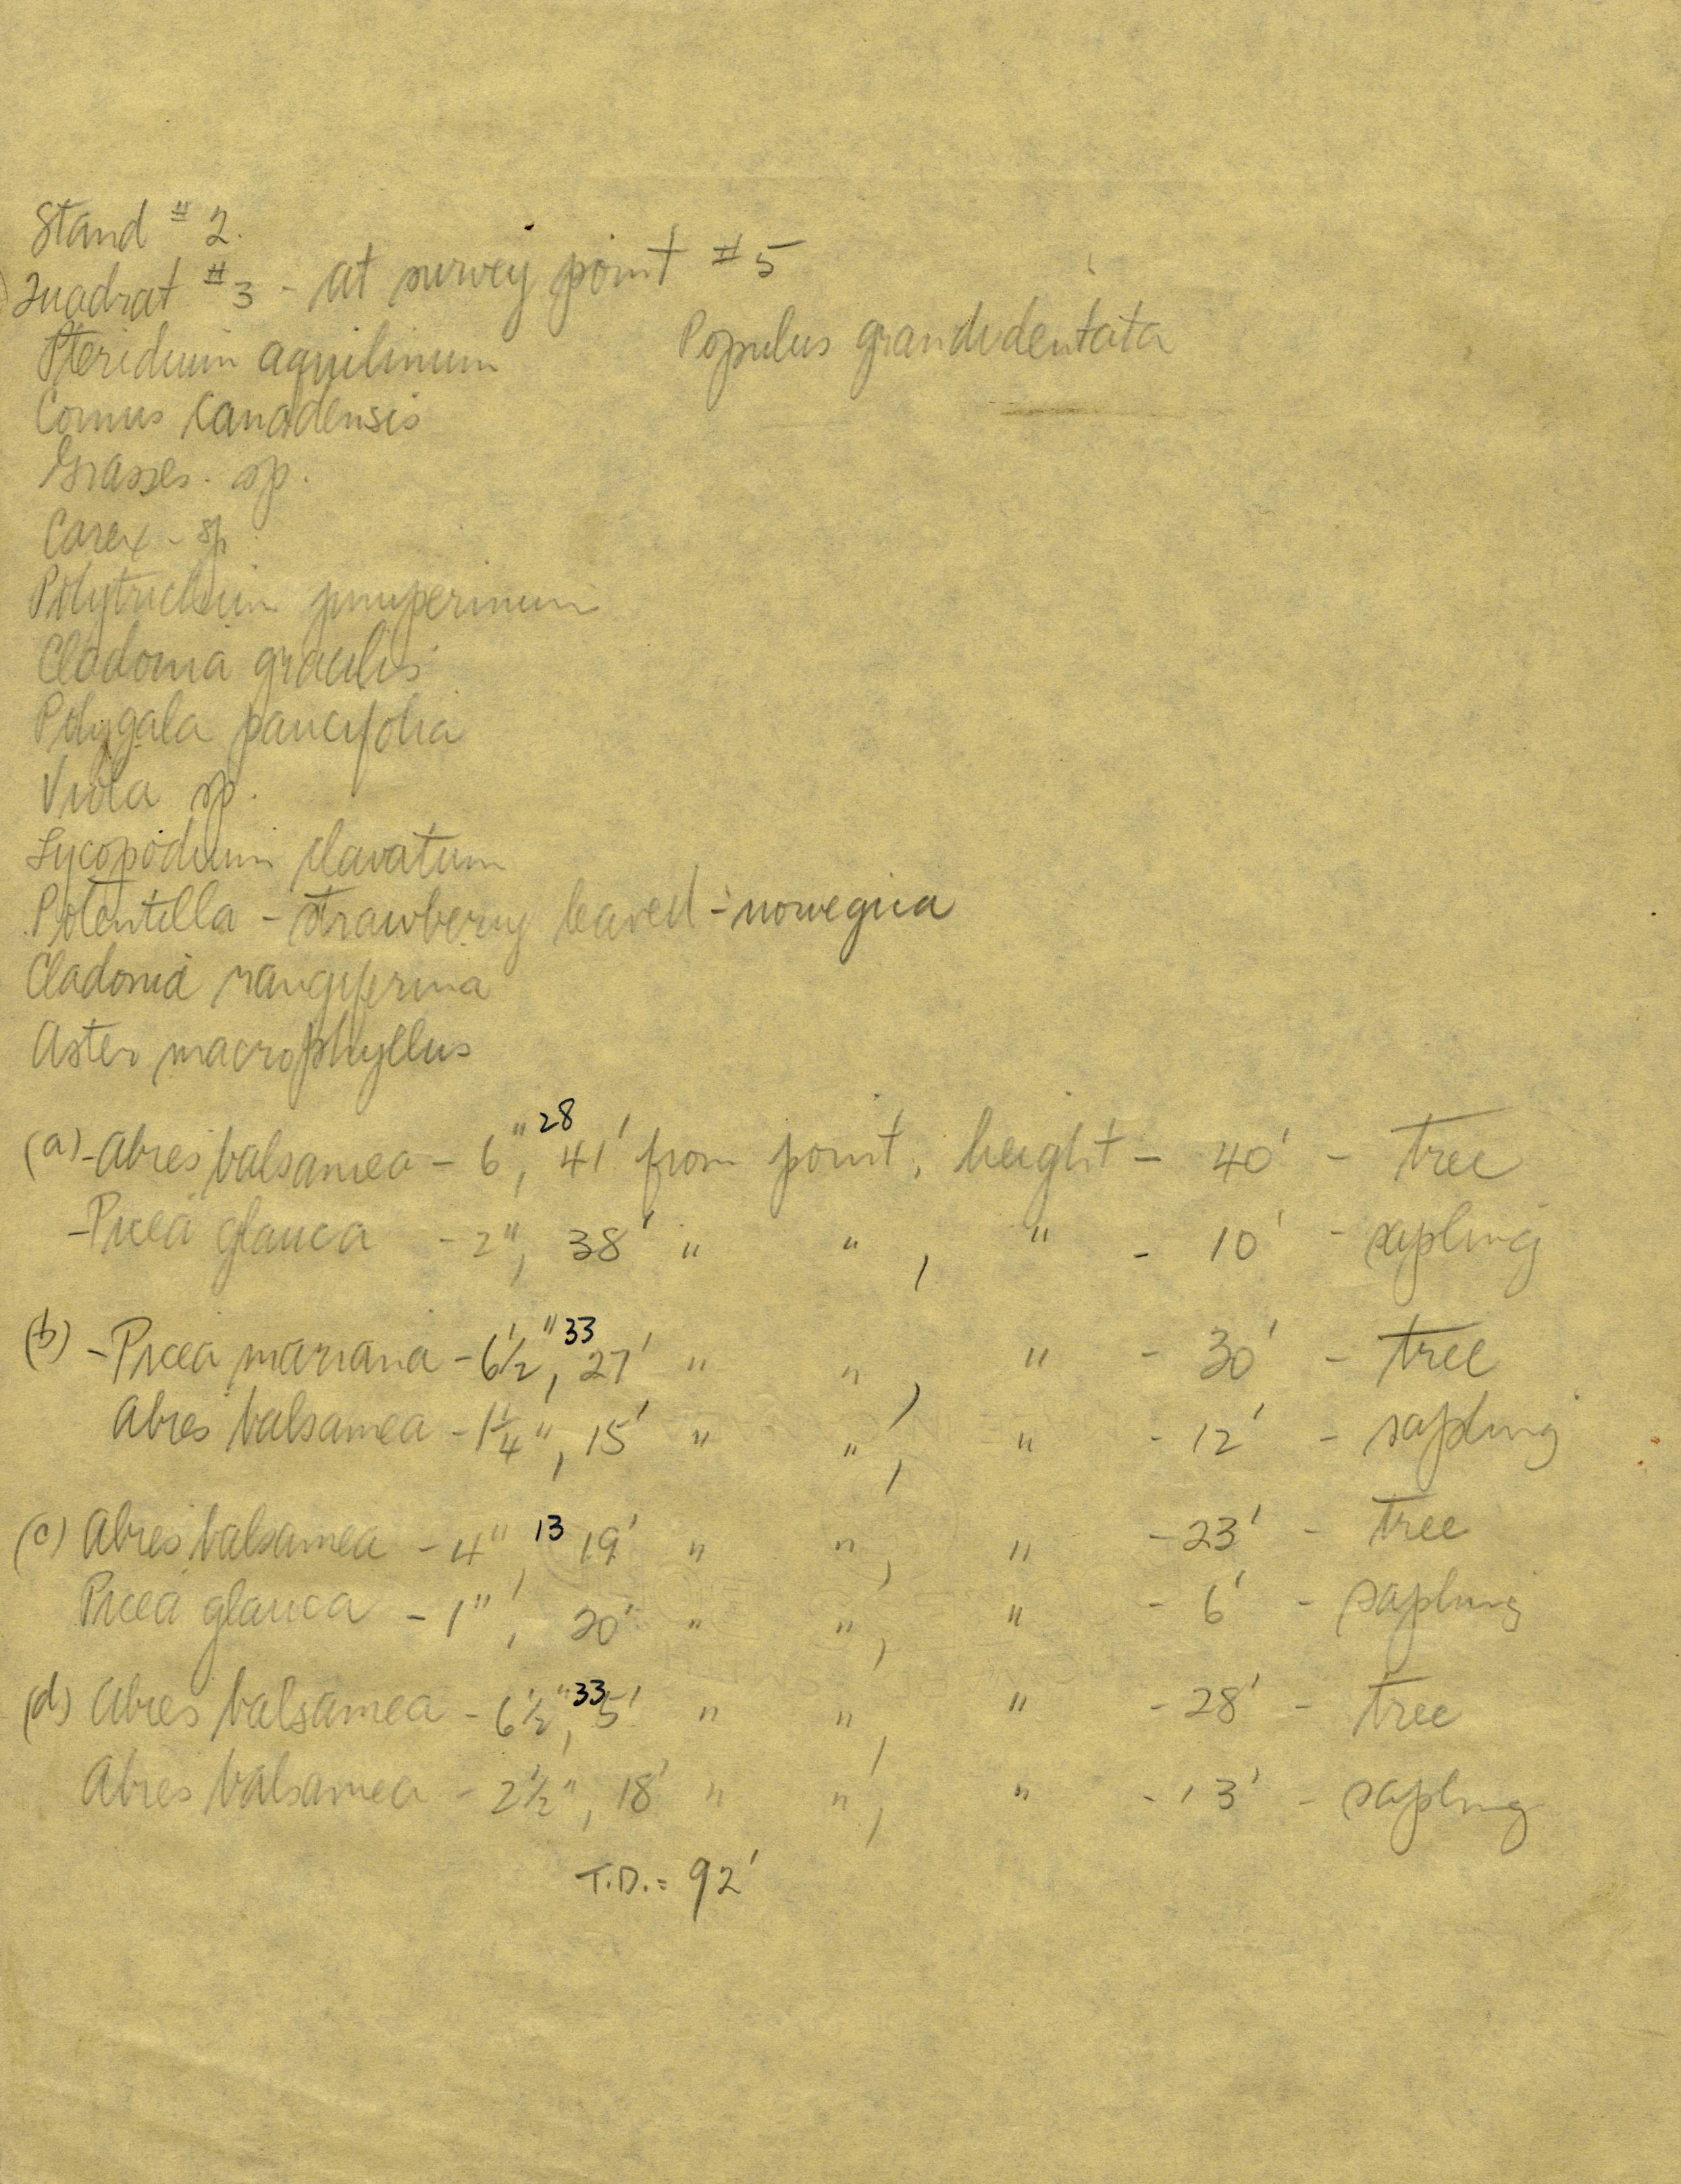 Stand # 2.
Quadrat # 3 - at survey point # 5
Pteridium aquilinum Populus grandidentata
Cornus canadensis
Grasses - sp.
Carex - sp.
Polytrichum juniperinum
Cladonia gracilis
Polygala paucifolia
Viola sp.
Lycopodium clavatum
Potentilla - strawberry leaved - norvegica
Cladonia rangiferina
Aster macrophyllus
28
(a) - Abies balsamea - 6", 41' from point, height - 40' - tree
- Picea glauca - 2", 38' " " , " - 10' - sapling
33
(b) - Picea mariana - 6 1/2", 27' " " , " - 30' - tree
Abies balsamea - 1 1/4", 15' " " , " - 12' - sapling
(c) Abies balsamea - 4", 13 19' " " , " - 23' - tree
Picea glauca - 1", 20' " " , " - 6' - sapling
33
(d) Abies balsamea - 6 1/2", 5' " " , " - 28' - tree
Abies balsamea - 2 1/2", 18' " " , " - 13' - sapling
T.D. = 92'